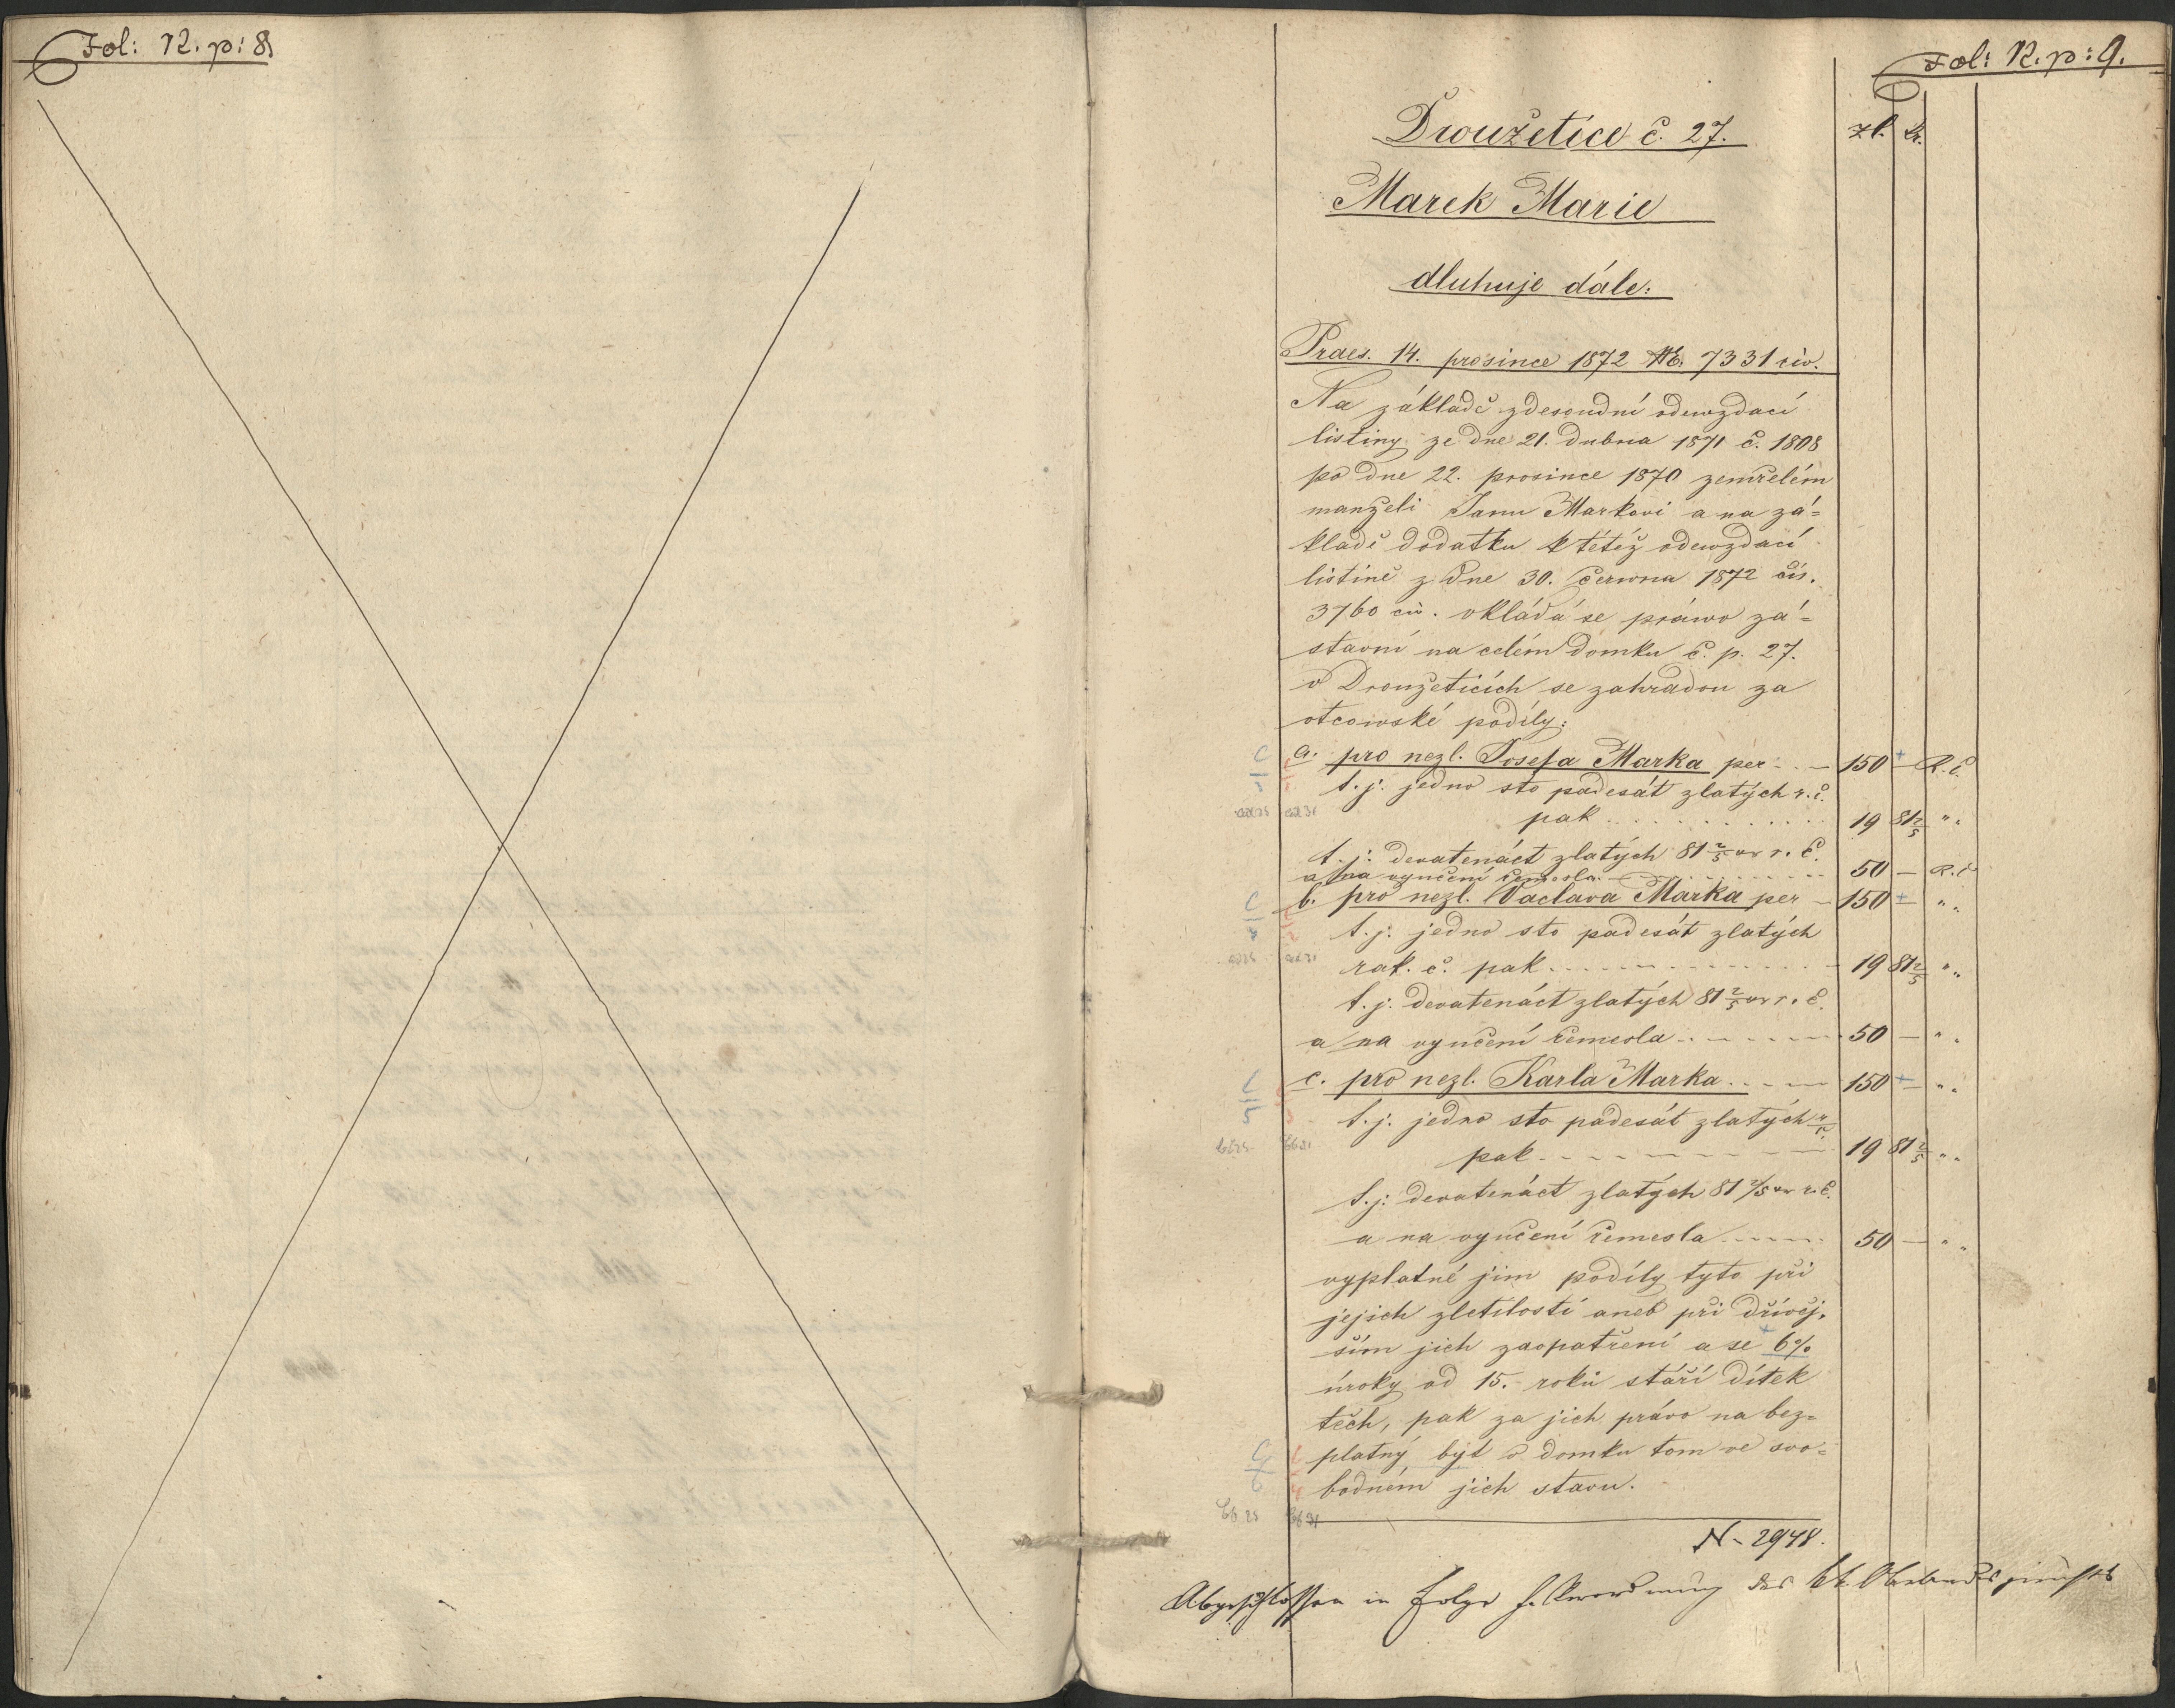 Fol: 12. p: 8
Fol: 12. p: 9.
Droužetice č. 27.
zl. kr.
Marek Marie
dluhuje dále:
Praes. 14. prosince 1872 NE. 7331 civ.
Na základě zdesoudní odewzdací
listiny ze dne 21. dubna 1871 č. 1808
po dne 22. prosince 1870 zemřelém
manželi Janu Markovi a na zá=
kladě dodatku k tétéž odewzdací
listině z dne 30. června 1872 čís.
3760 civ. vkládá se práwo zá=
stavní na celém domku č. p. 27.
v Droužeticích se zahradou za
otcowské podíly:
a. pro nezl. Josefa Marka per 150 — R. č.
t. j. jedno sto padesát zlatých r. č.
pak 19 81 2/5 " "
t. j. devatenáct zlatých 81 2/5 kr r. č.
a na vyučení řemesla 50 — R. č
b. pro nezl. Václava Marka per 150 — " "
t. j. jedno sto padesát zlatých
rak. č. pak 19 81 2/5 " "
t. j. devatenáct zlatých 81 2/5 kr r. č.
a na vyučení řemesla 50 — " "
c. pro nezl. Karla Marka 150 — " "
t. j. jedno sto padesát zlatých r. č.
pak 19 81 2/5 " "
t. j. devatenáct zlatých 81 2/5 kr r. č.
a na vyučení řemesla 50 — " "
vyplatné jim podíly tyto při
jejich zletilosti aneb při dřívěj=
ším jich zaopatření a se 6%
úroky od 15. roků stáří dítek
těch, pak za jich právo na bez=
platný byt v domku tom ve svo=
bodném jich stavu.
N- 2948.
Abgeschlossen in Folge h. Anordnung des kk. Oberlandesgerichts